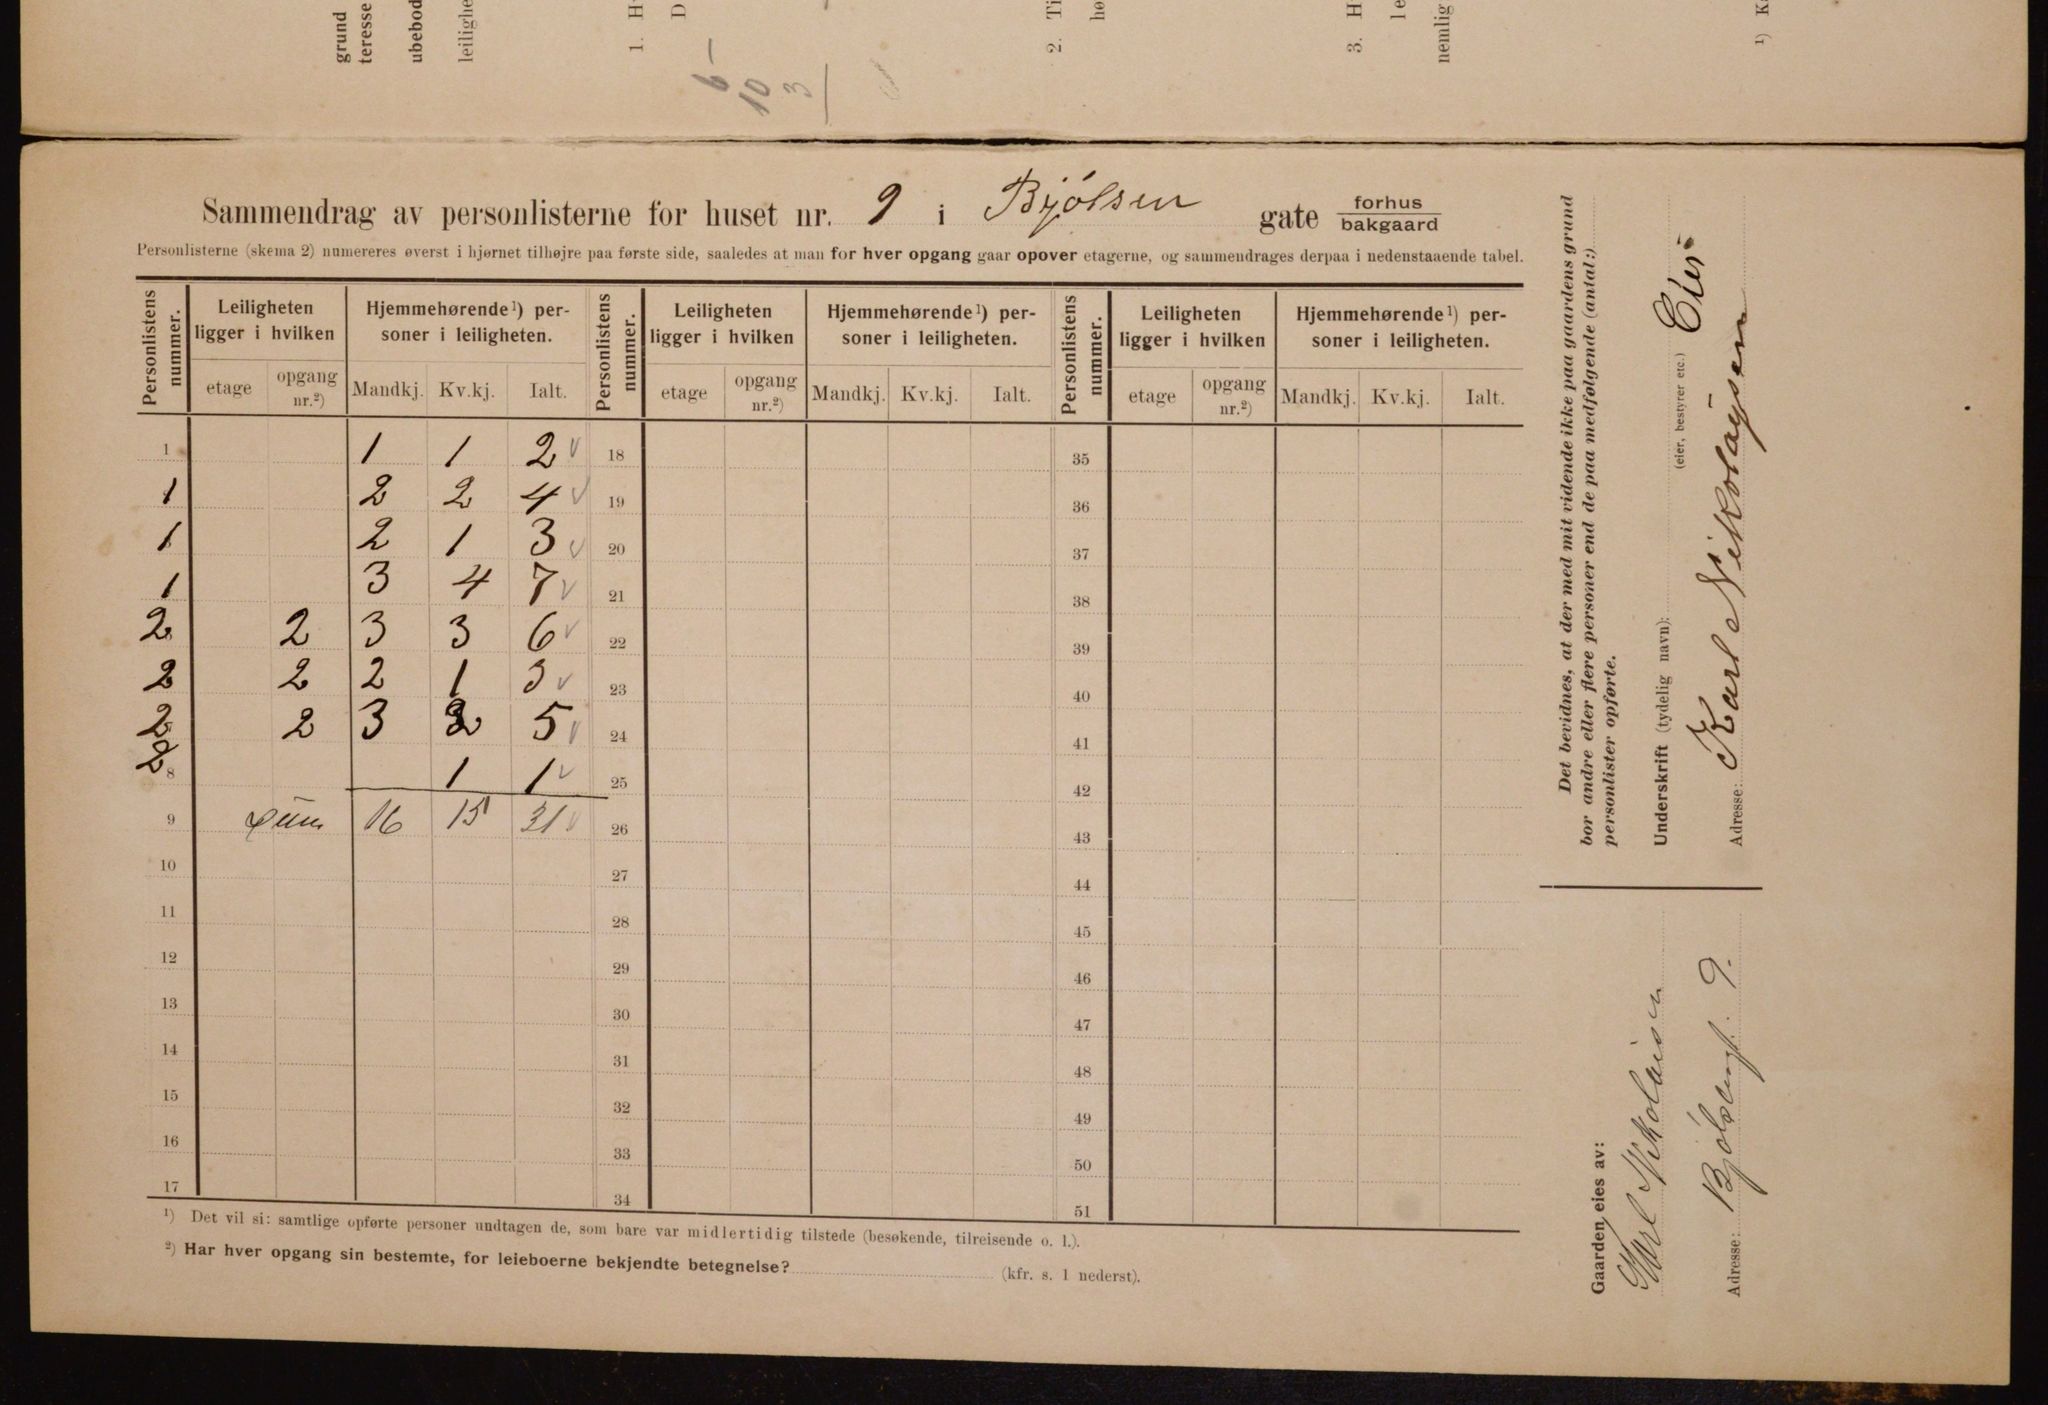 grund
teresse
ubebod
leilighe
1. H
D
6
10
3
2. Ti
hø
3. H
le
nemlig
¹) K
Sammendrag av personlisterne for huset nr. 9 i Bjølsen gate forhus/bakgaard
Personlisterne (skema 2) numereres øverst i hjørnet tilhøjre paa første side, saaledes at man for hver opgang gaar opover etagerne, og sammendrages derpaa i nedenstaaende tabel.
Personlistens nummer. Leiligheten ligger i hvilken Hjemmehørende¹) personer i leiligheten. Personlistens nummer. Leiligheten ligger i hvilken Hjemmehørende¹) personer i leiligheten. Personlistens nummer. Leiligheten ligger i hvilken Hjemmehørende¹) personer i leiligheten.
etage opgang nr.²) Mandkj. Kv.kj. Ialt. etage opgang nr.²) Mandkj. Kv.kj. Ialt. etage opgang nr.²) Mandkj. Kv.kj. Ialt.
1 1 1 2 18 35
1 2 2 4 19 36
1 2 1 3 20 37
1 3 4 7 21 38
2 2 3 3 6 22 39
2 2 2 1 3 23 40
2 2 3 2 5 24 41
2 8 1 1 25 42
9 Sum 16 15 31 26 43
10 27 44
11 28 45
12 29 46
13 30 47
14 31 48
15 32 49
16 33 50
17 34 51
¹) Det vil si: samtlige opførte personer undtagen de, som bare var midlertidig tilstede (besøkende, tilreisende o. l.).
²) Har hver opgang sin bestemte, for leieboerne bekjendte betegnelse? (kfr. s. 1 nederst).
Det bevidnes, at der med mit vidende ikke paa gaardens grund
bor andre eller flere personer end de paa medfølgende (antal:)
personlister opførte.
Underskrift (tydelig navn): (eier, bestyrer etc.) Eier
Karl Nikolaysen
Adresse:
Gaarden eies av:
Karl Nikolaisen
Adresse: Bjølsengt. 9.